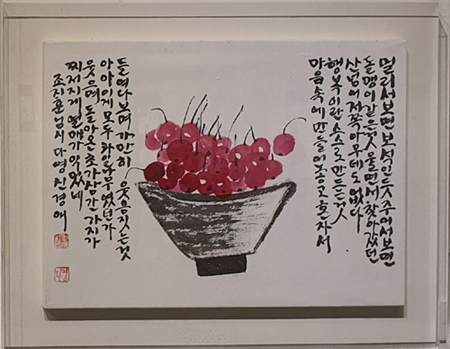 멀리서보면보석인듯주어서보면
돌맹이같은것울면서찾아갔던
산넘어저쪽아무데도없다
행복이란스스로만드는것
마음속에만들어놓고혼자서
들여다보며가만히 웃음짓는것
아아이게모두과일나무였던가
웃으며돌아온초가삼간가지가
찌저지게열매가익었네
조지훈님시다영신경애